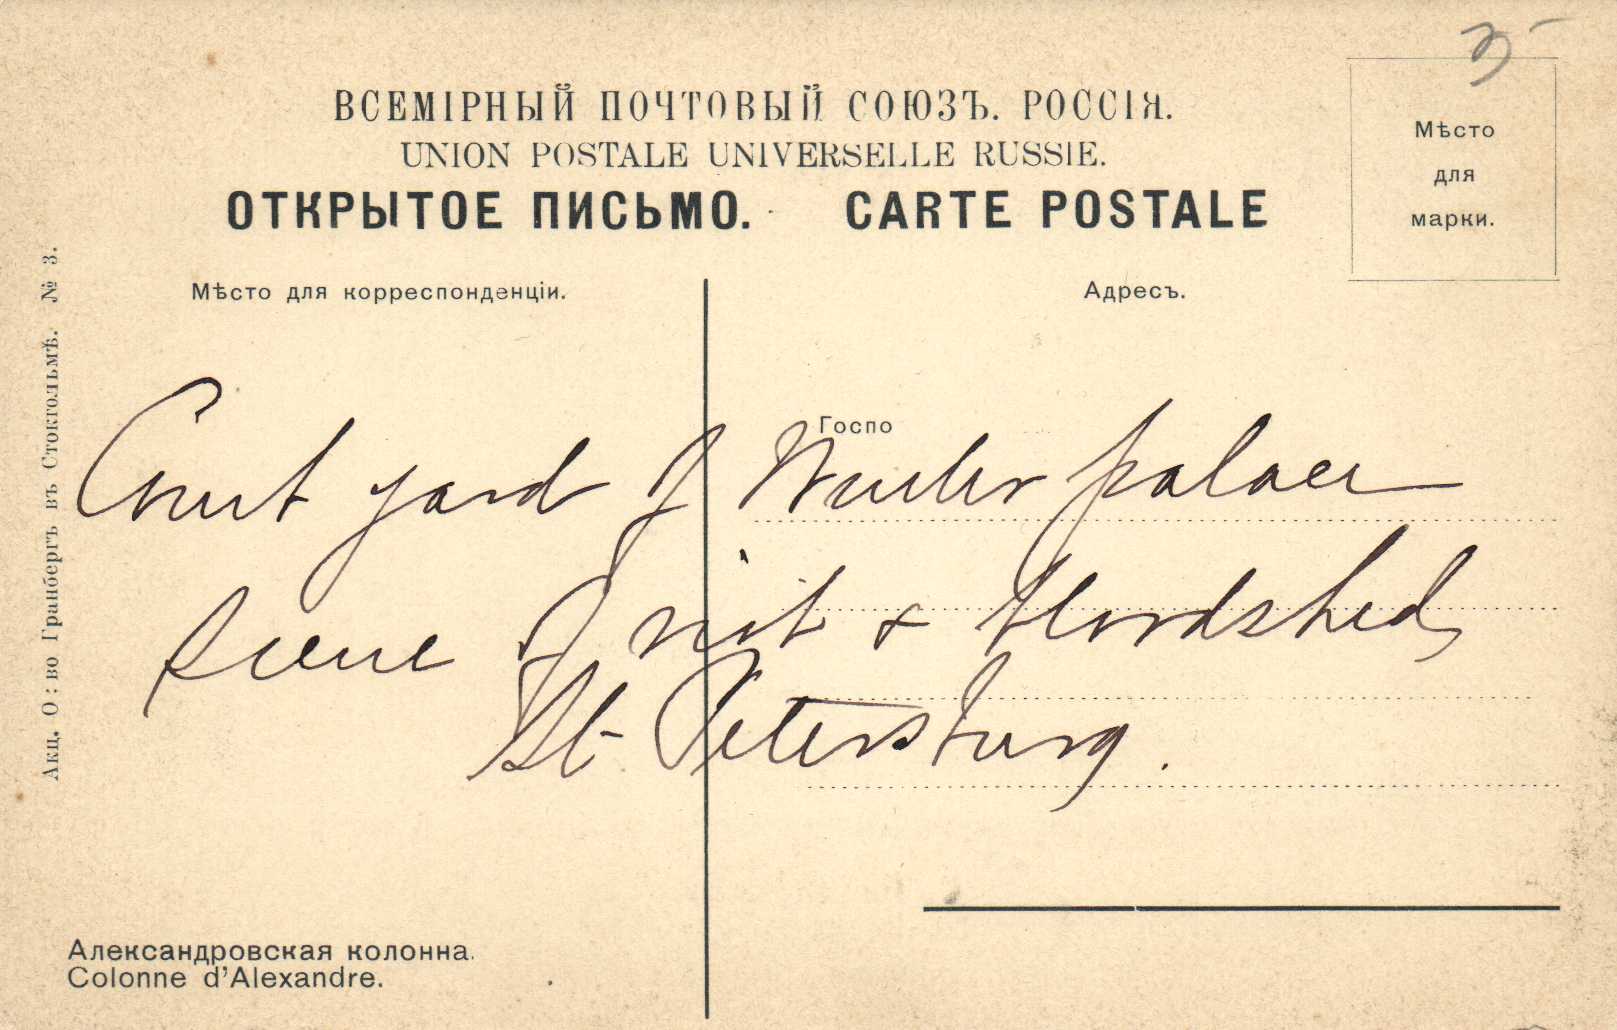 35
ВСЕМІРНЫЙ ПОЧТОВЫЙ СОЮЗЪ. РОССІЯ.
UNION POSTALE UNIVERSELLE RUSSIE.
ОТКРЫТОЕ ПИСЬМО. CARTE POSTALE
Мѣсто
для
марки.
Мѣсто для корреспонденціи.
Адресъ.
Госпо
Court yard of Winter palace
Scene of riot & bloodshed,
St. Petersburg.
Александровская колонна.
Colonne d'Alexandre.
Акц. О: во Гранбергъ въ Стокгольмѣ. № 3.